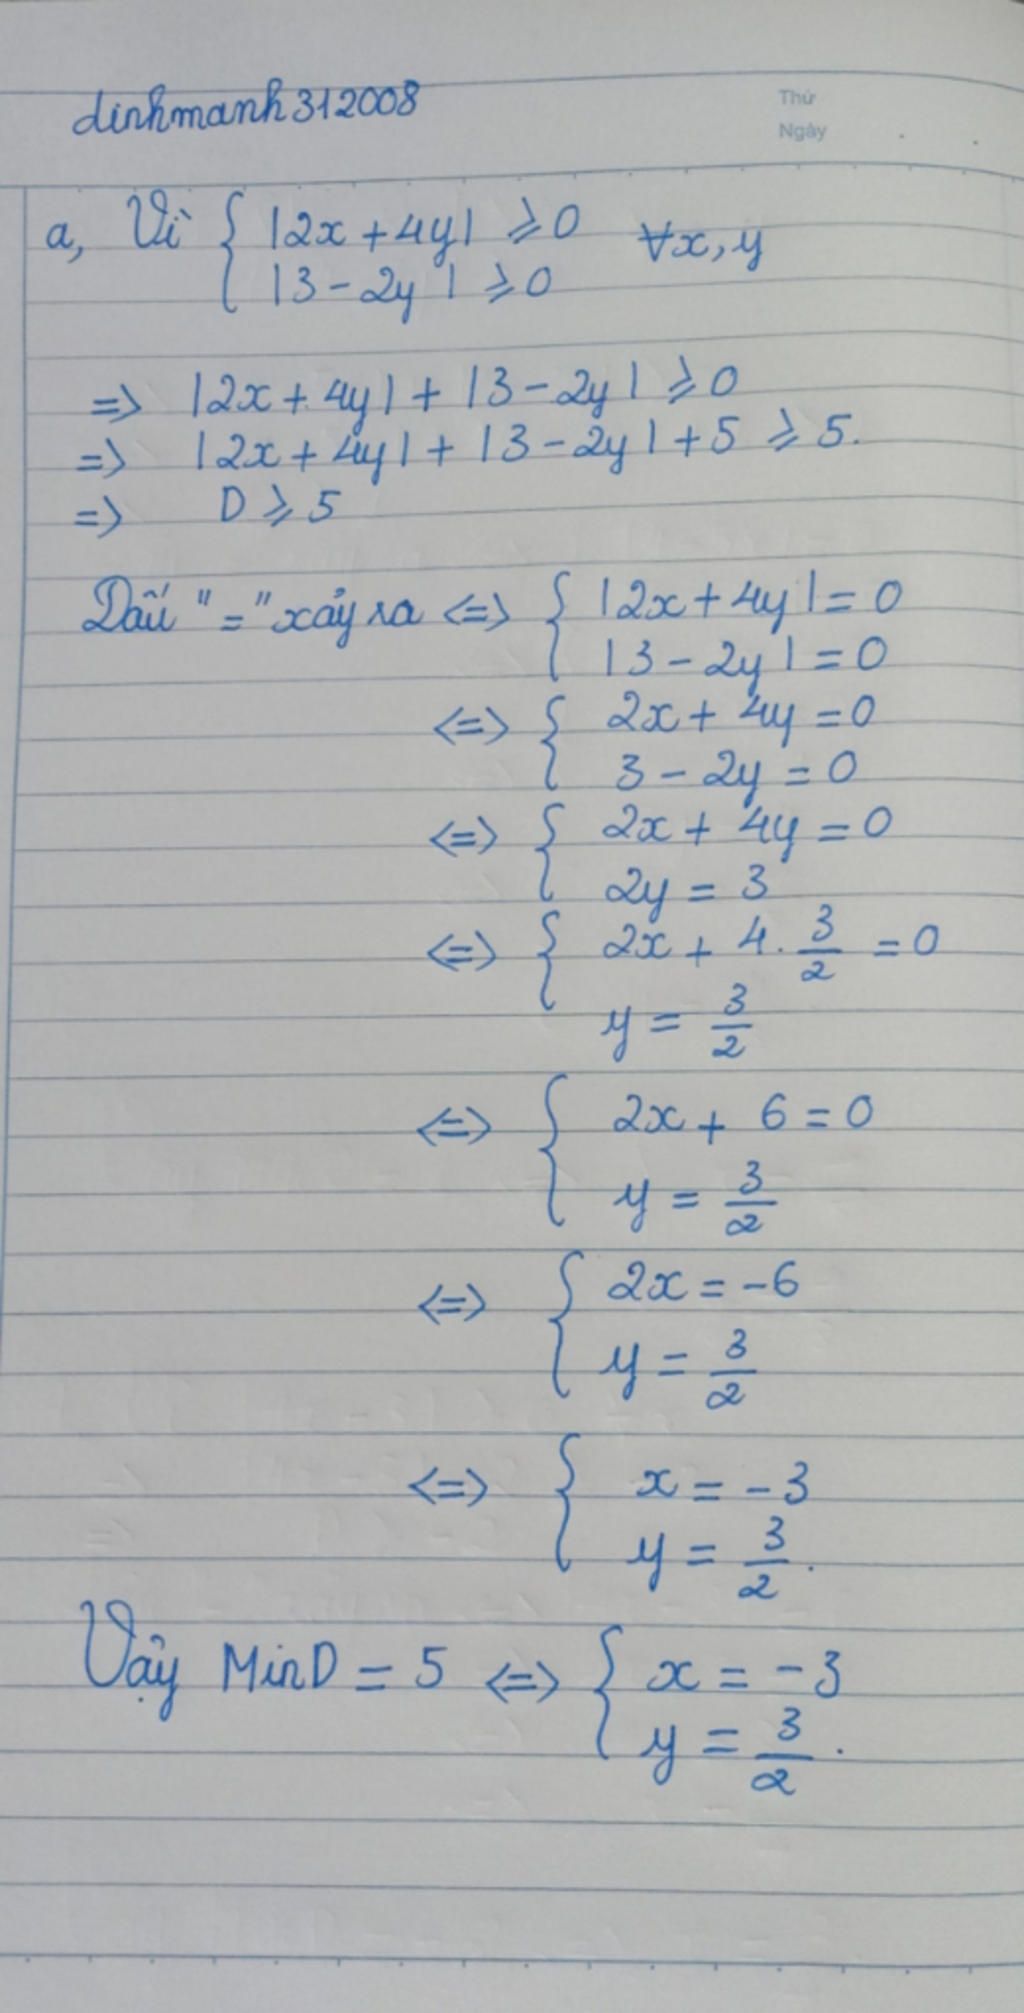 dinhmanh312008
Thứ
Ngày
a, Vì { |2x + 4y| ⩾ 0 ∀x, y
|3 - 2y| ⩾ 0
=> |2x + 4y| + |3 - 2y| ⩾ 0
=> |2x + 4y| + |3 - 2y| + 5 ⩾ 5.
=> D ⩾ 5
Dấu "=" xảy ra <=> { |2x + 4y| = 0
|3 - 2y| = 0
<=> { 2x + 4y = 0
3 - 2y = 0
<=> { 2x + 4y = 0
2y = 3
<=> { 2x + 4. 3/2 = 0
y = 3/2
<=> { 2x + 6 = 0
y = 3/2
<=> { 2x = -6
y = 3/2
<=> { x = -3
y = 3/2.
Vậy MinD = 5 <=> { x = -3
y = 3/2.